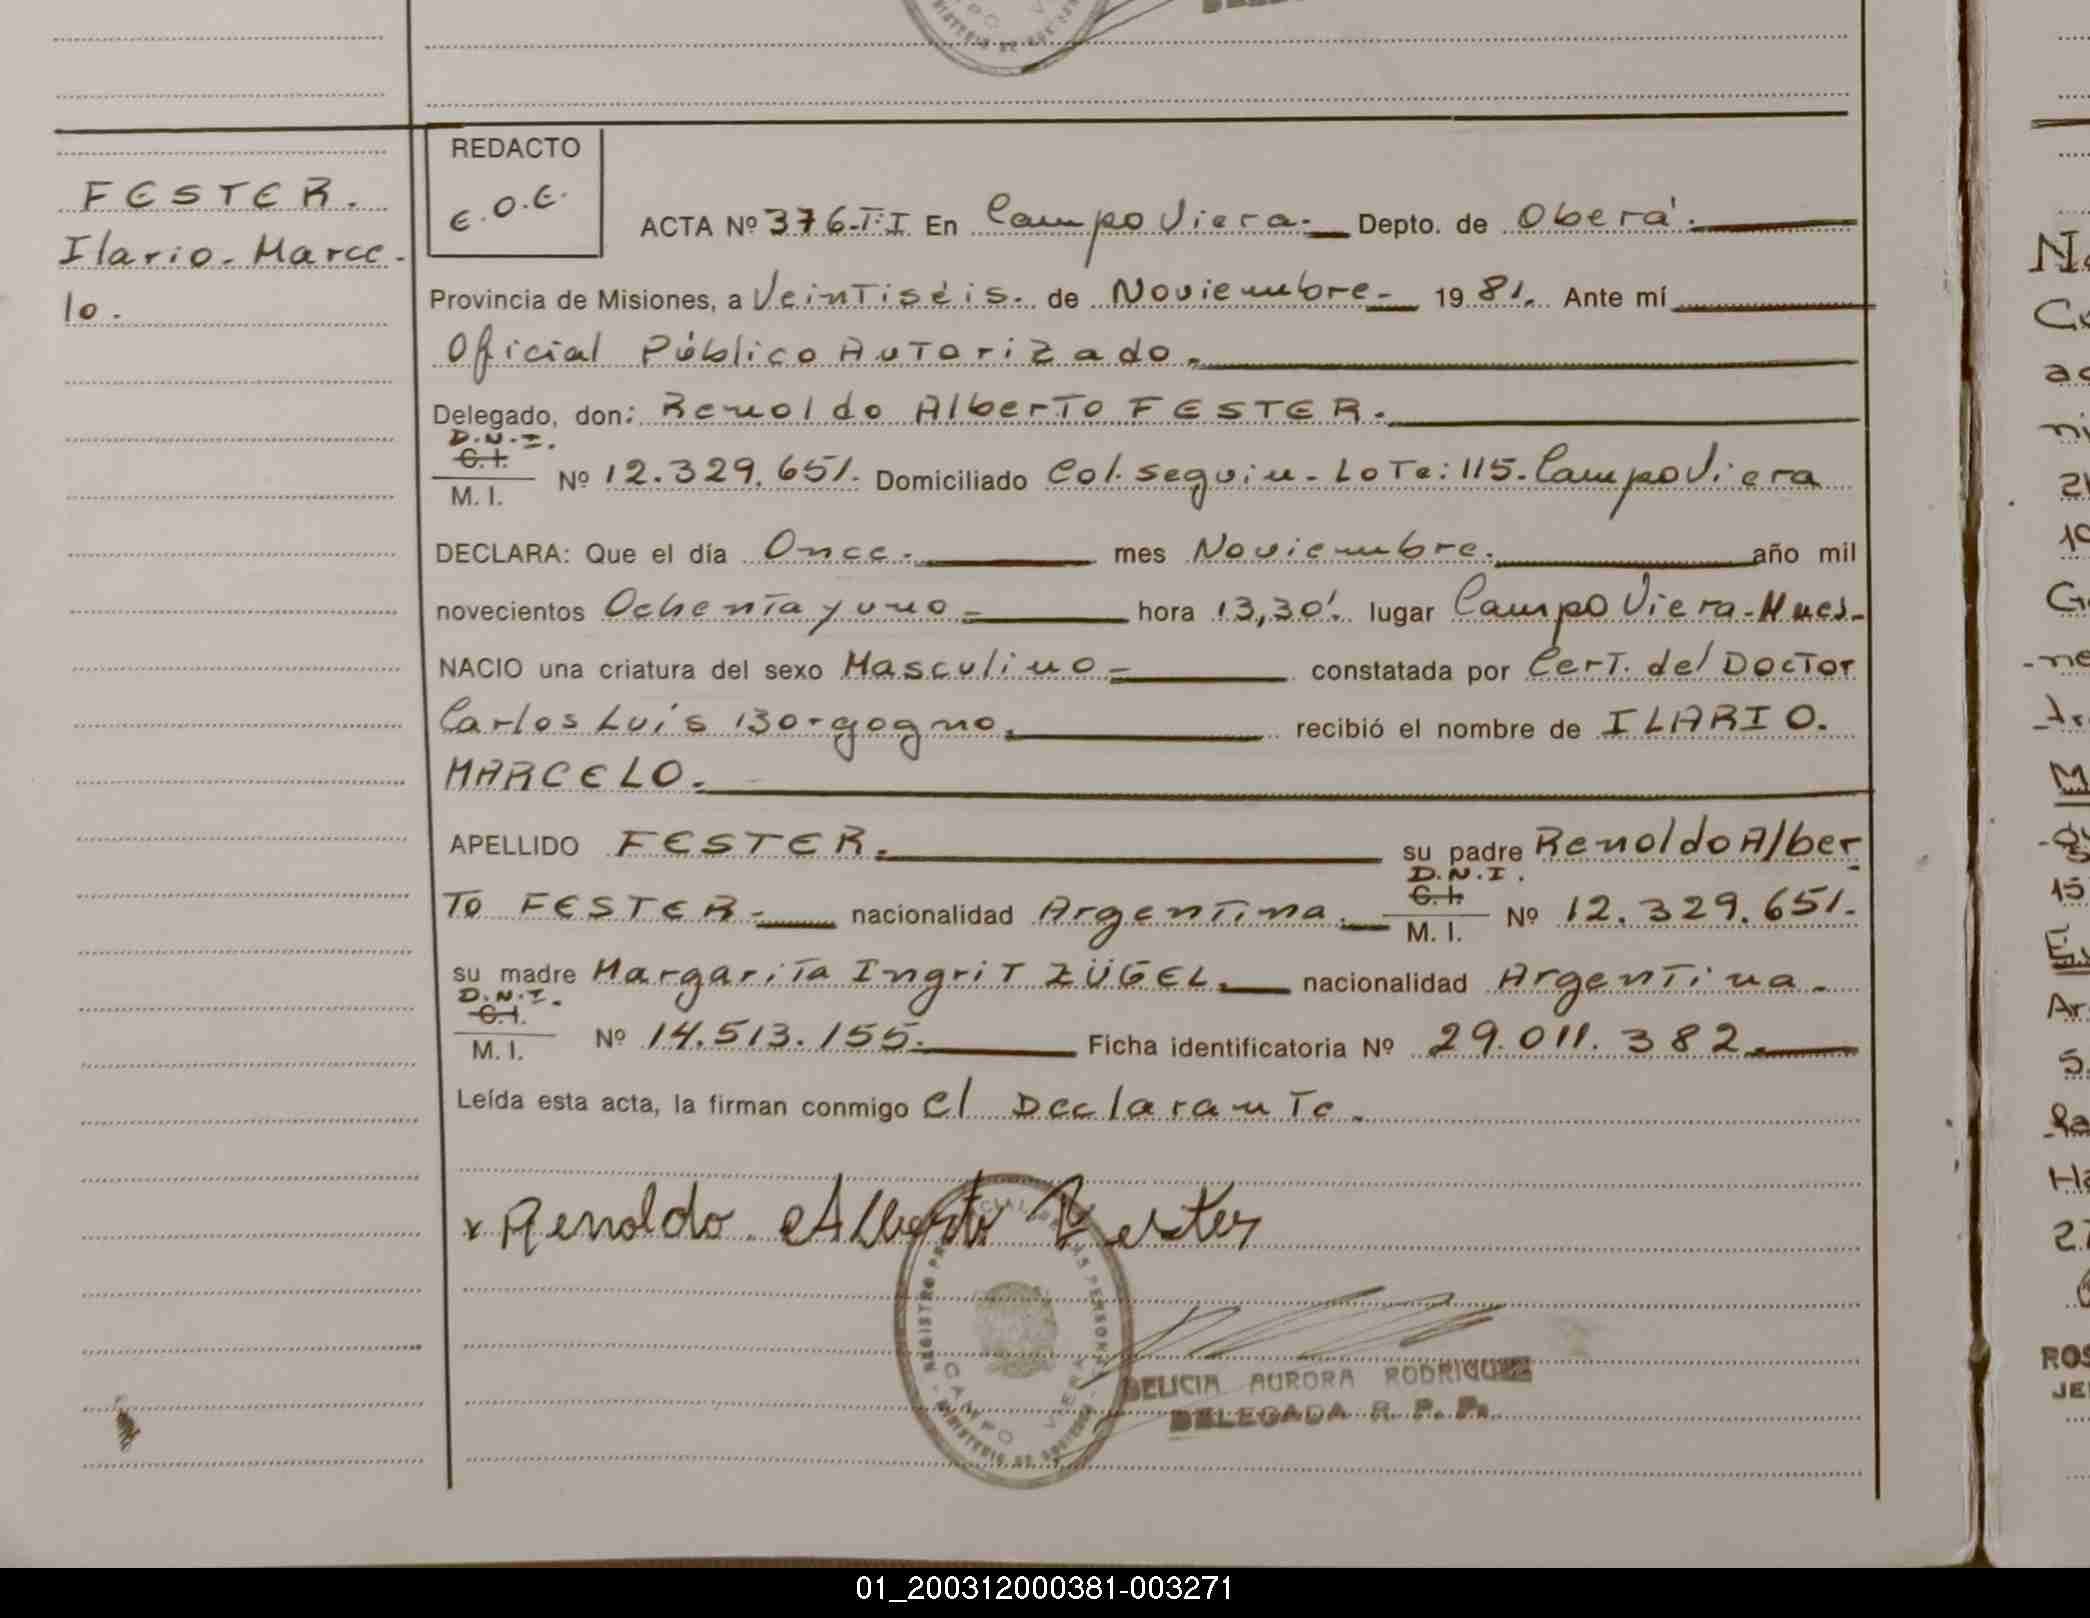 FESTER.
Ilario. Marce-
lo.
REDACTO
E.O.E.
ACTA Nº 376-T:I En Campo Viera.- Depto. de Oberá.
Provincia de Misiones, a Veintiséis. de Noviembre- 1981. Ante mí
Oficial Público Autorizado.
Delegado, don: Renoldo Alberto FESTER.
D.N.I.
C.I.
M. I. Nº 12.329.651. Domiciliado Col. Seguin- Lote: 115- Campo Viera
DECLARA: Que el día Once. mes Noviembre. año mil
novecientos Ochenta y uno hora 13,30'. lugar Campo Viera-Mnes.
NACIO una criatura del sexo Masculino constatada por Cert. del Doctor
Carlos Luis Borgogno. recibió el nombre de ILARIO.
MARCELO.
APELLIDO FESTER. su padre Renoldo Alber
D.N.I.
C.I.
to FESTER.- nacionalidad Argentina. M. I. Nº 12.329.651.
su madre Margarita Ingrit ZÜGEL. nacionalidad Argentina.
D.N.I.
C.I.
M. I. Nº 14.513.155. Ficha identificatoria Nº 29.011.382.
Leída esta acta, la firman conmigo el Declarante.
x Renoldo Alberto Fester
CAMPO VIERA
DELICIA AURORA RODRIGUEZ
DELEGADA R. P. P.
01_200312000381-003271